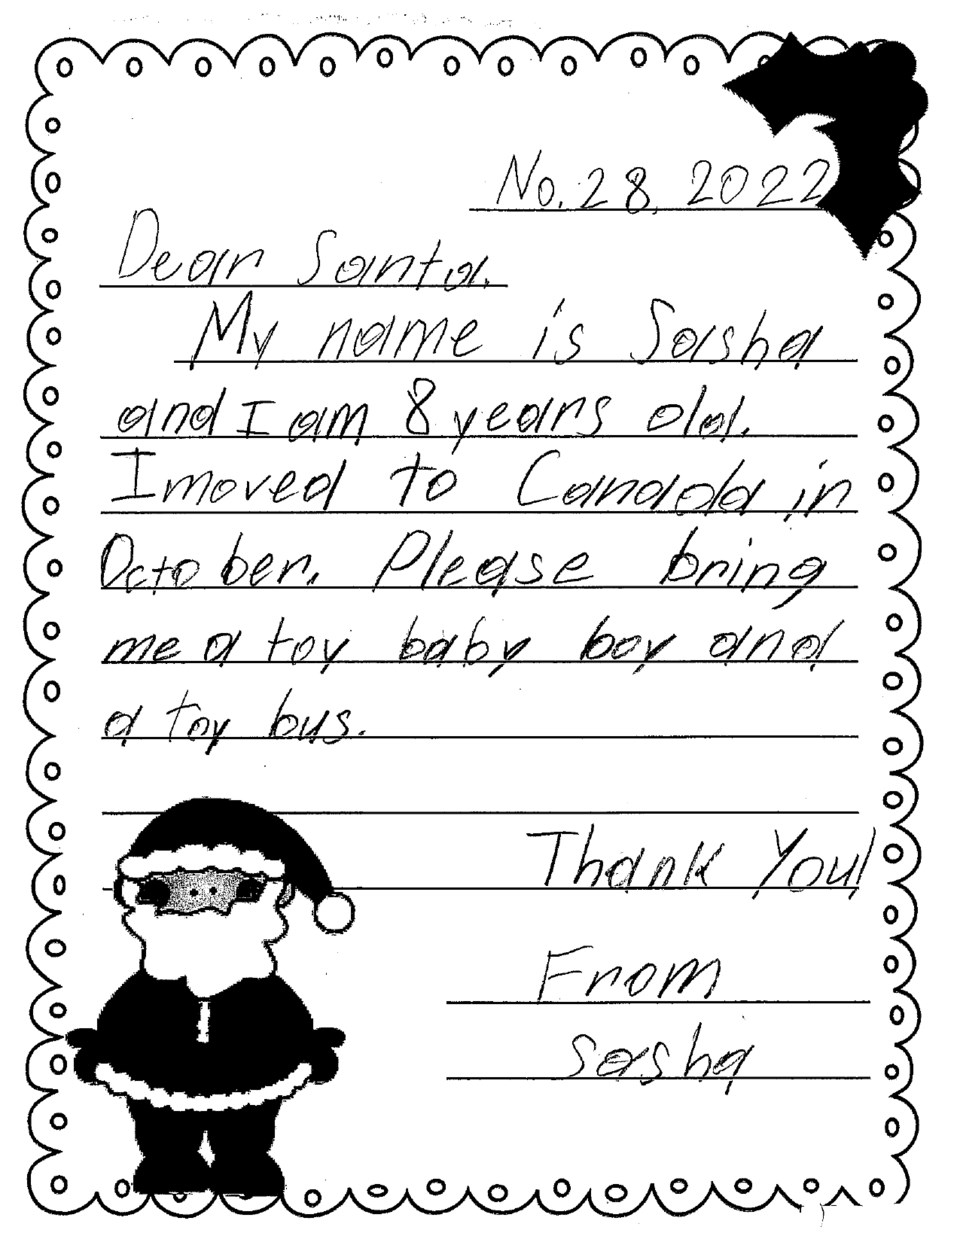 No. 28, 2022
Dear Santa.
My name is Sasha
and I am 8 years old.
I moved to Canada in
October. Please bring
me a toy baby boy and
a toy bus.
Thank You!
From
Sasha